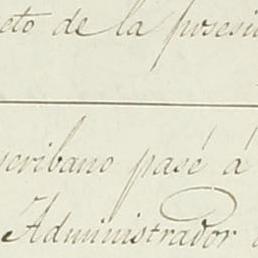 eto de la posesi
scribano pasé á
Administrador